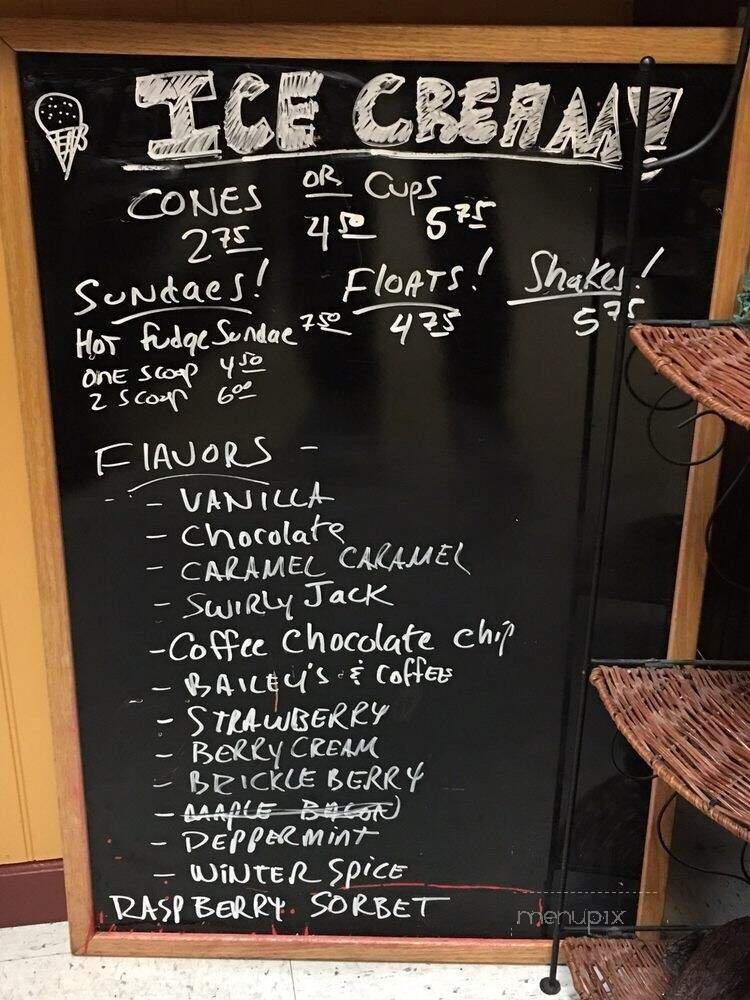 ICE CREAM!
CONES OR CUPS
2 75 4 50 5 75
SUNDAES! FLOATS! Shakes!
HOT fudge Sundae 7 50 4 75 5 75
ONE SCOOP 4 50
2 SCOOP 6 00
FLAVORS -
- VANILLA
- Chocolate
- CARAMEL CARAMEL
- SWIRLY JACK
- Coffee chocolate chip
- BAILEY'S & COFFEE
- STRAWBERRY
- BERRY CREAM
- BRICKLE BERRY
- MAPLE BACON
- PEPPERMINT
- WINTER SPICE
RASPBERRY SORBET
menupix